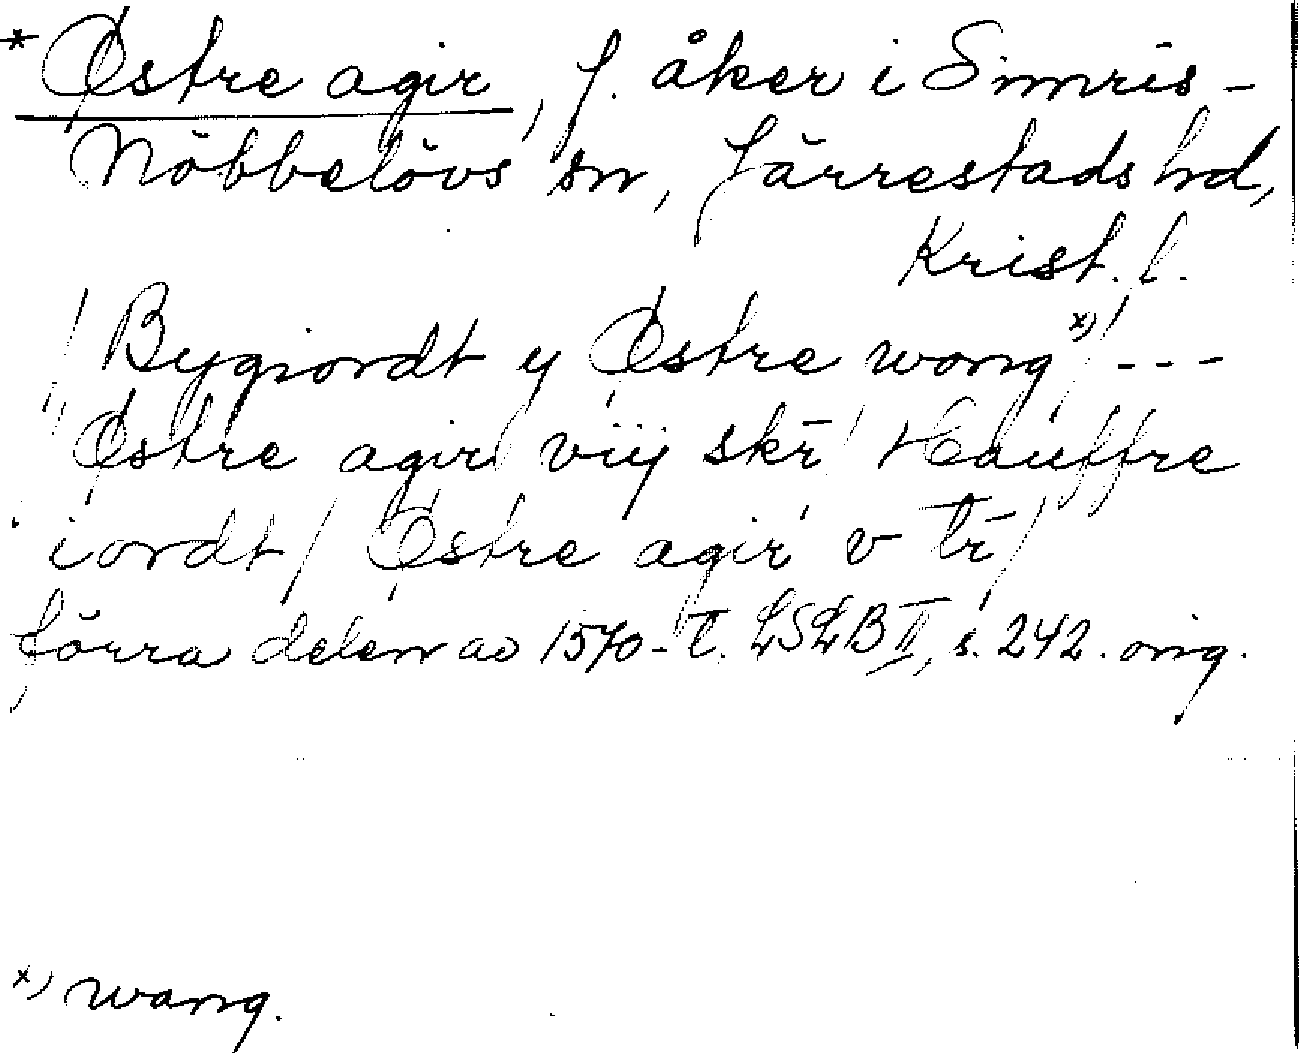 * Østre agir, f. åker i Simris-
Nöbbelövs sn, Järrestads hd,
Krist. l.
/ Bygiordt y Østre wong x) / - - -
Østre agir / viij skr̄ / Hauffre
iordt / Østre agir v tr̄ /
förra delen av 1570-t. LSLB II, s. 242. orig.
x) wang.